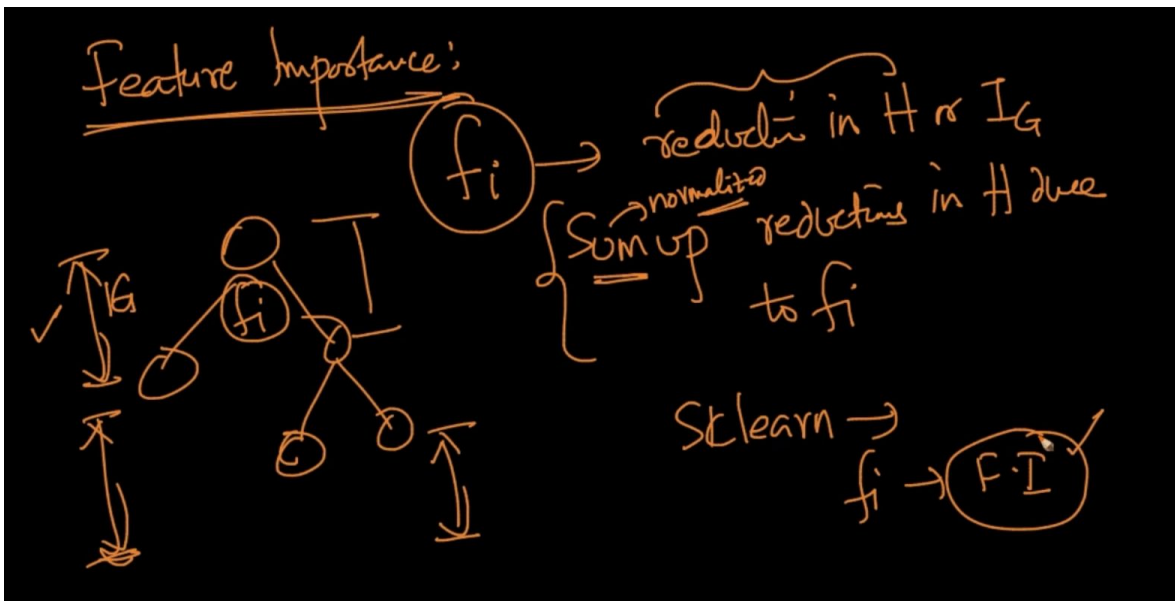 Feature Importance:
fi → reduction in H or IG
normalized
Sum up reductions in H due
to fi
IG
fi
Sklearn →
fi → F.I